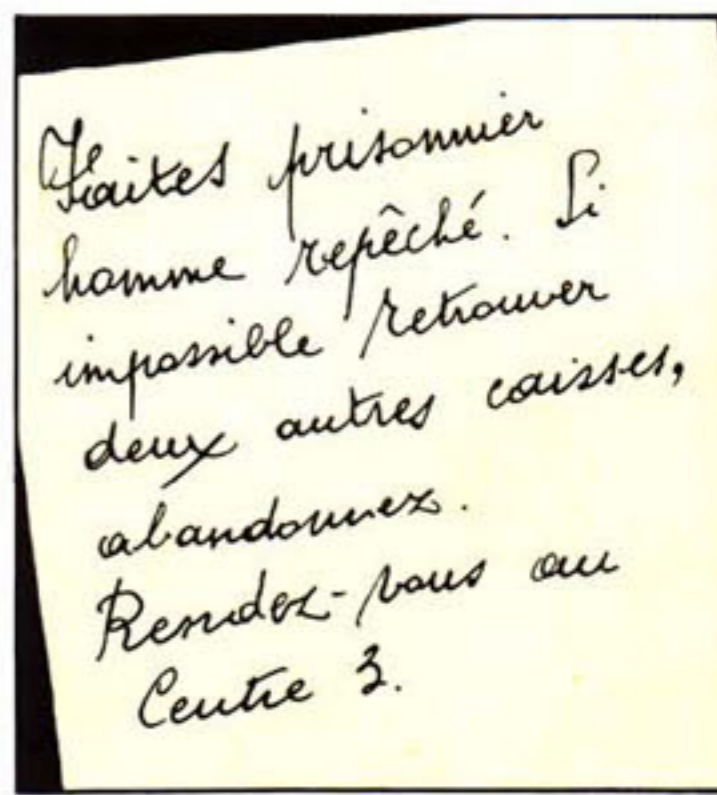 Faites prisonnier
homme repêché. Si
impossible retrouver
deux autres caisses,
abandonnez.
Rendez-vous au
Centre 3.